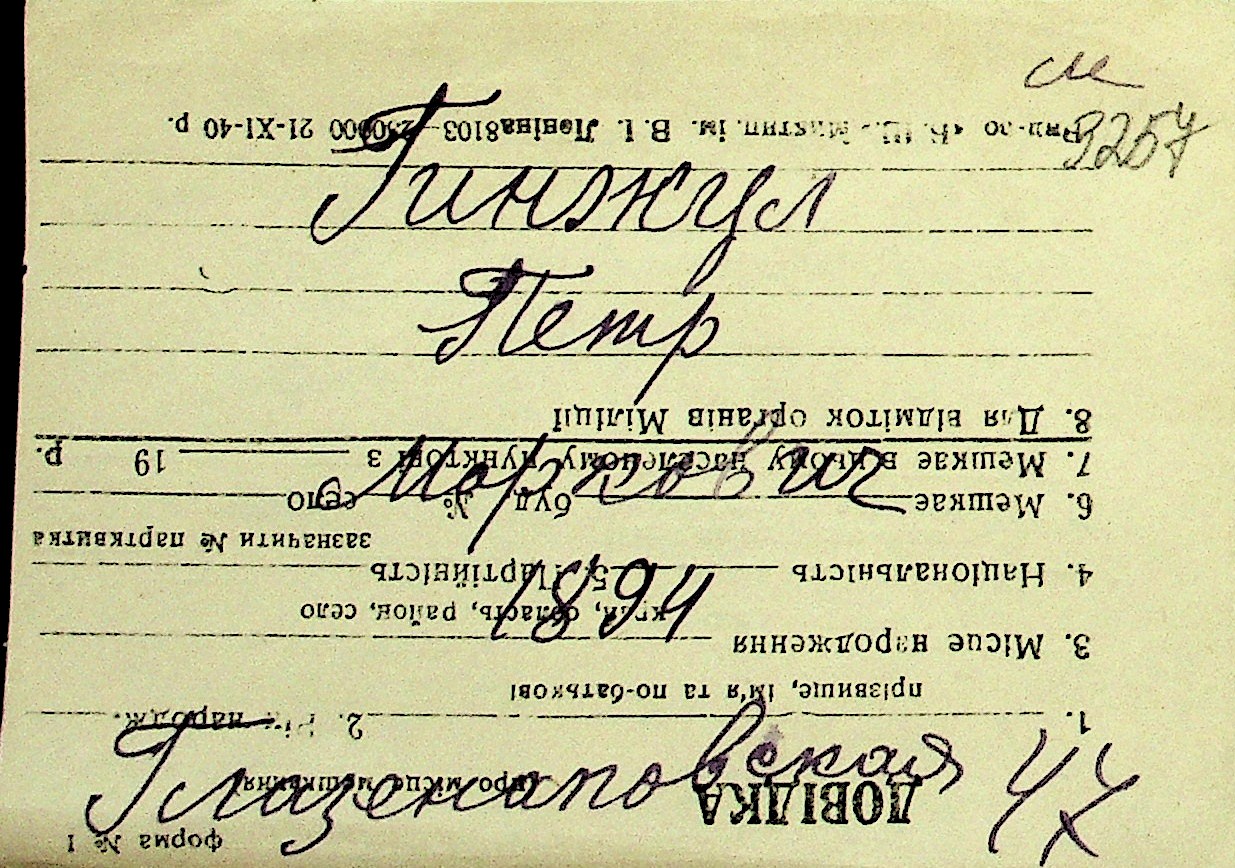 см
3257
Гинжул
Петр
Маркович
1894
Глазенаповская 47
форма № 1
ДОВІДКА
про місце мешкання
1. 2. Рік народж.
прізвище, ім'я та по-батькові
3. Місце народження
край, область, район, село
4. Національність 5. Партійність
зазначити № партквитка
6. Мешкає буд. № село
7. Мешкає в цьому населеному пунктові з 19 р.
8. Для відміток органів Міліції
ім. В. І. Леніна 8103 21-XI-40 р.